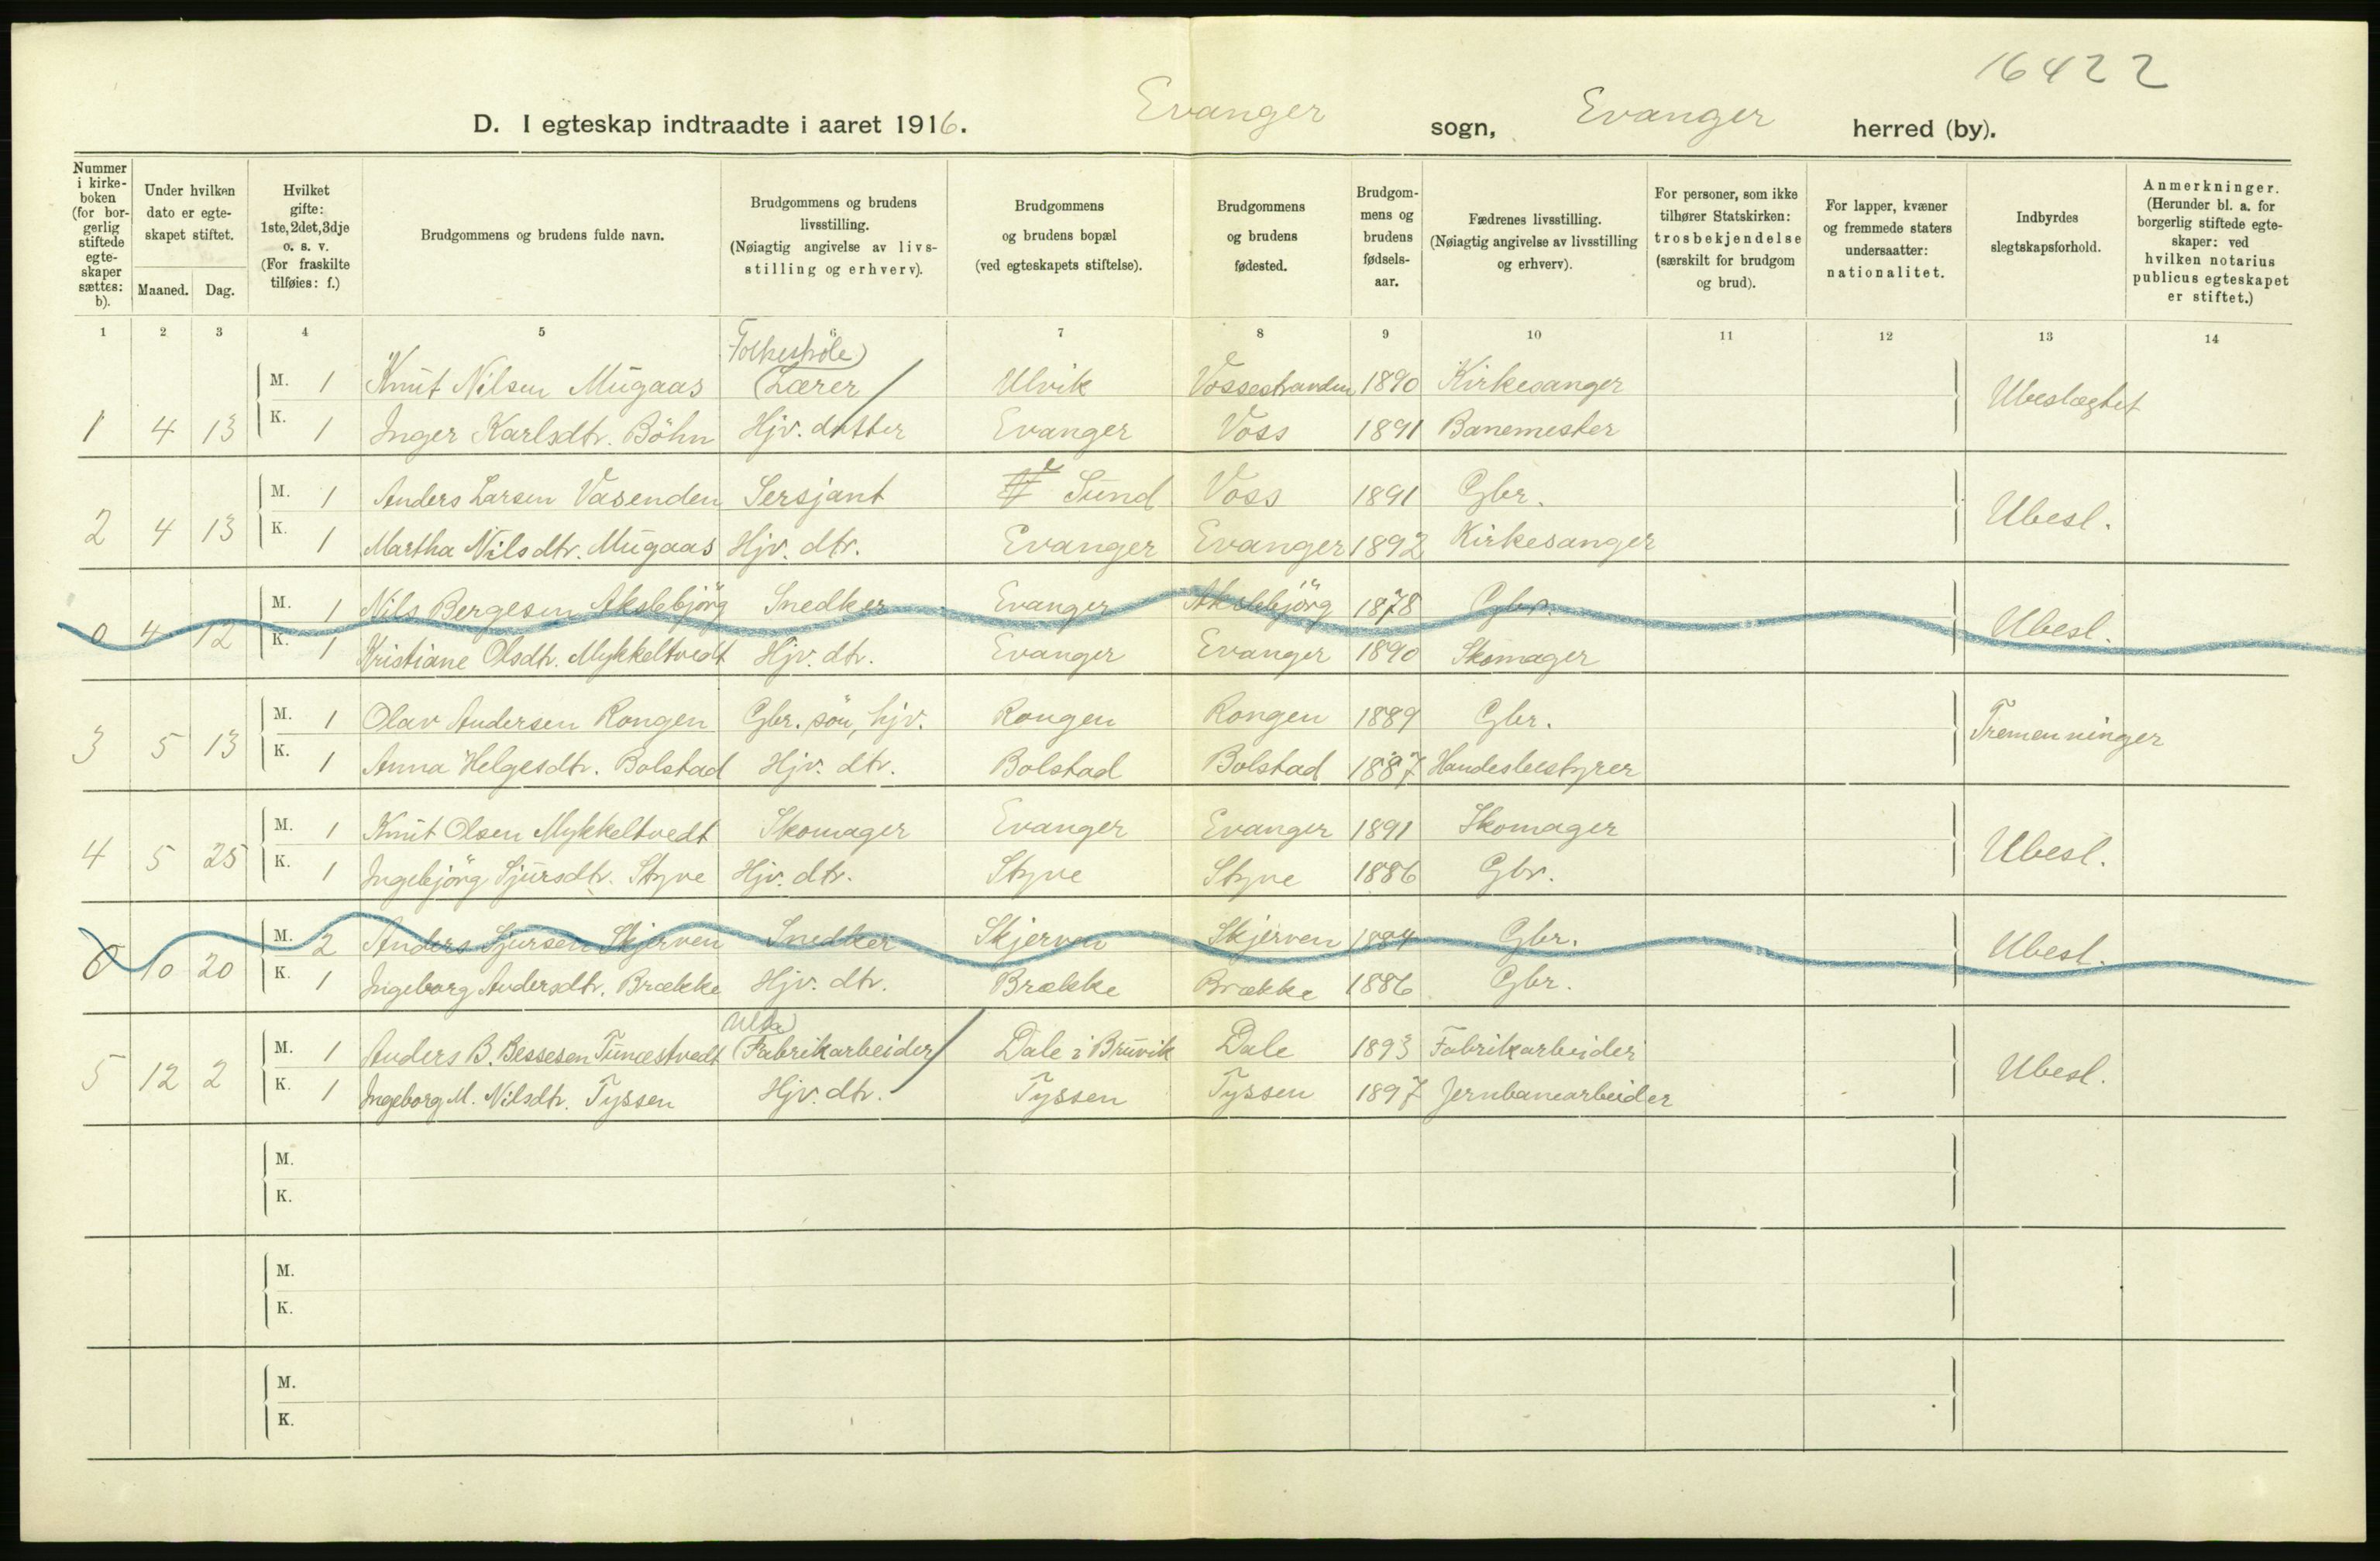 16422
D. I egteskap indtraadte i aaret 1916. Evanger sogn, Evanger herred (by).
Nummer i kirkeboken (for borgerlig stiftede egteskaper sættes: b).
Under hvilken dato er egteskapet stiftet.
Maaned. Dag.
Hvilket gifte: 1ste, 2det, 3dje o. s. v. (For fraskilte tilføies: f.)
Brudgommens og brudens fulde navn.
Brudgommens og brudens livsstilling. (Nøiagtig angivelse av livsstilling og erhverv).
Brudgommens og brudens bopæl (ved egteskapets stiftelse).
Brudgommens og brudens fødested.
Brudgommens og brudens fødselsaar.
Fædrenes livsstilling. (Nøiagtig angivelse av livsstilling og erhverv).
For personer, som ikke tilhører Statskirken: trosbekjendelse (særskilt for brudgom og brud).
For lapper, kvæner og fremmede staters undersaatter: nationalitet.
Indbyrdes slegtskapsforhold.
Anmerkninger. (Herunder bl. a. for borgerlig stiftede egteskaper: ved hvilken notarius publicus egteskapet er stiftet.)
1 2 3 4 5 6 7 8 9 10 11 12 13 14
Folkeskole
M. 1 Knut Nilsen Mugaas Lærer Ulvik Vossestranden 1890 Kirkesanger Ubeslægtet
1 4 13 K. 1 Inger Karlsdtr. Böhn Hjv. datter Evanger Voss 1891 Banemester
M. 1 Anders Larsen Vasenden Sersjant Sund Voss 1891 Gbr. Ubesl.
2 4 13 K. 1 Martha Nilsdtr. Mugaas Hjv. dtr. Evanger Evanger 1892 Kirkesanger
M. 1 Nils Bergesen Akslebjörg Snedker Evanger Akslebjörg 1878 Gbr. Ubesl.
0 4 12 K. 1 Kristiane Olsdtr. Mykkeltvedt Hjv. dtr. Evanger Evanger 1890 Skomager
M. 1 Olav Andersen Rongen Gbr. sön, hjv. Rongen Rongen 1889 Gbr. Tremenninger
3 5 13 K. 1 Anna Helgesdtr. Bolstad Hjv. dtr. Bolstad Bolstad 1887 Handesbestyrer
M. 1 Knut Olsen Mykkeltvedt Skomager Evanger Evanger 1891 Skomager Ubesl.
4 5 25 K. 1 Ingebjörg Sjursdtr. Styve Hjv. dtr. Styve Styve 1886 Gbr.
M. 2 Anders Sjursen Skjerven Snedker Skjerven Skjerven 1884 Gbr. Ubesl.
10 20 K. 1 Ingeborg Andersdtr. Brække Hjv. dtr. Brække Brække 1886 Gbr.
Uld
M. 1 Anders B. Bessesen Fabrikarbeider Dale i Bruvik Dale 1893 Fabrikarbeider Ubesl.
5 12 2 K. 1 Ingeborg M. Nilsdtr. Tyssen Hjv. dtr. Tyssen Tyssen 1897 Jernbanearbeider
M.
K.
M.
K.
M.
K.